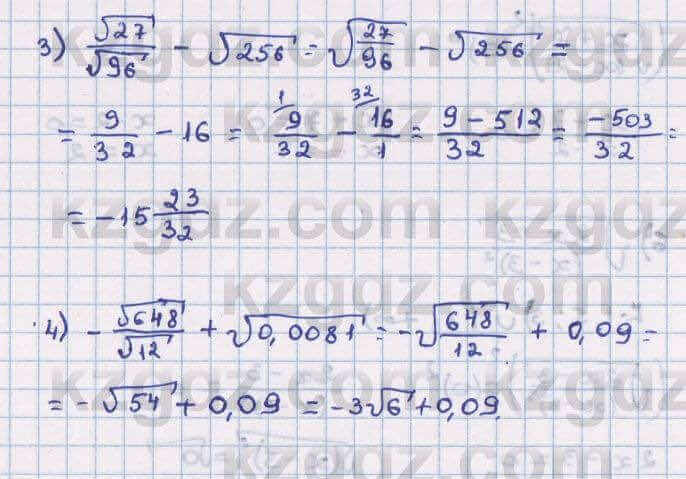 3) √27/√96 - √256 = √(27/96) - √256 =
= 9/32 - 16 = ¹⁄9/32 - ³²⁄16/1 = (9 - 512)/32 = -503/32 =
= -15 23/32
4) - √648/√12 + √0,0081 = -√(648/12) + 0,09 =
= -√54 + 0,09 = -3√6 + 0,09
kzgdz.com